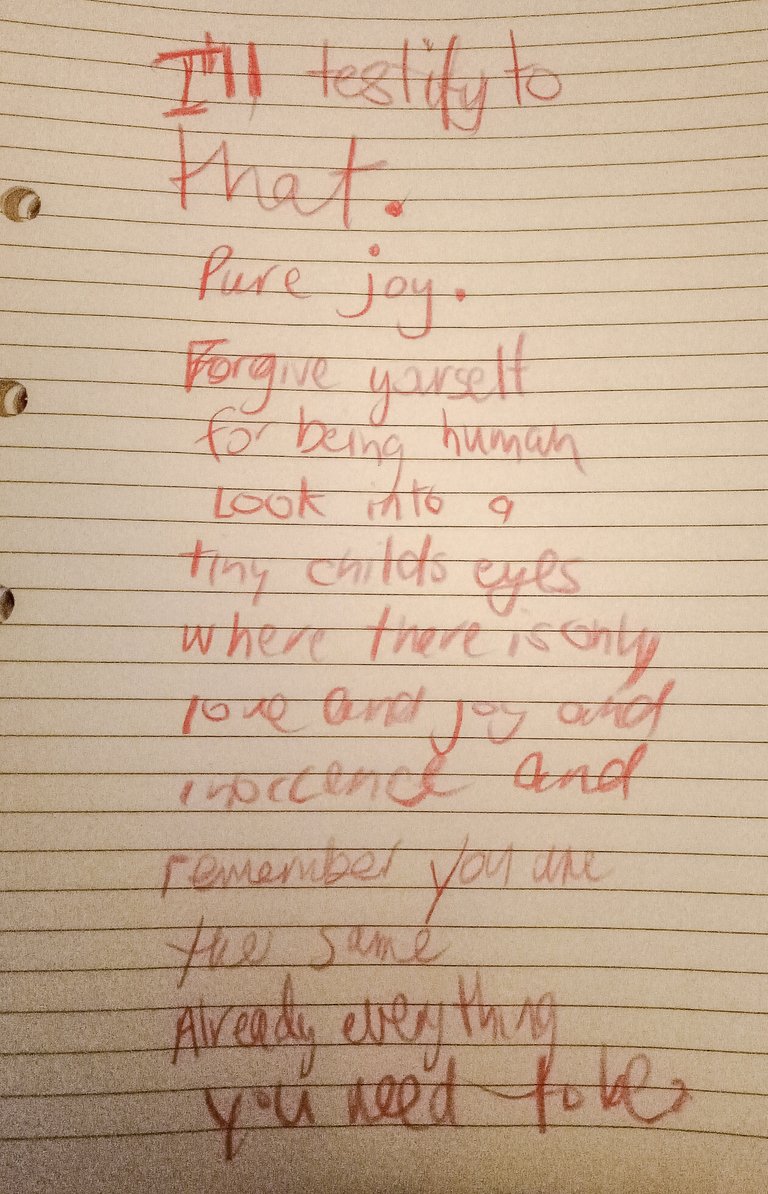 I'll testify to
that.
Pure joy.
Forgive yourself
for being human
Look into a
tiny childs eyes
where there is only
love and joy and
innocence and
remember you are
the same
Already everything
you need to be